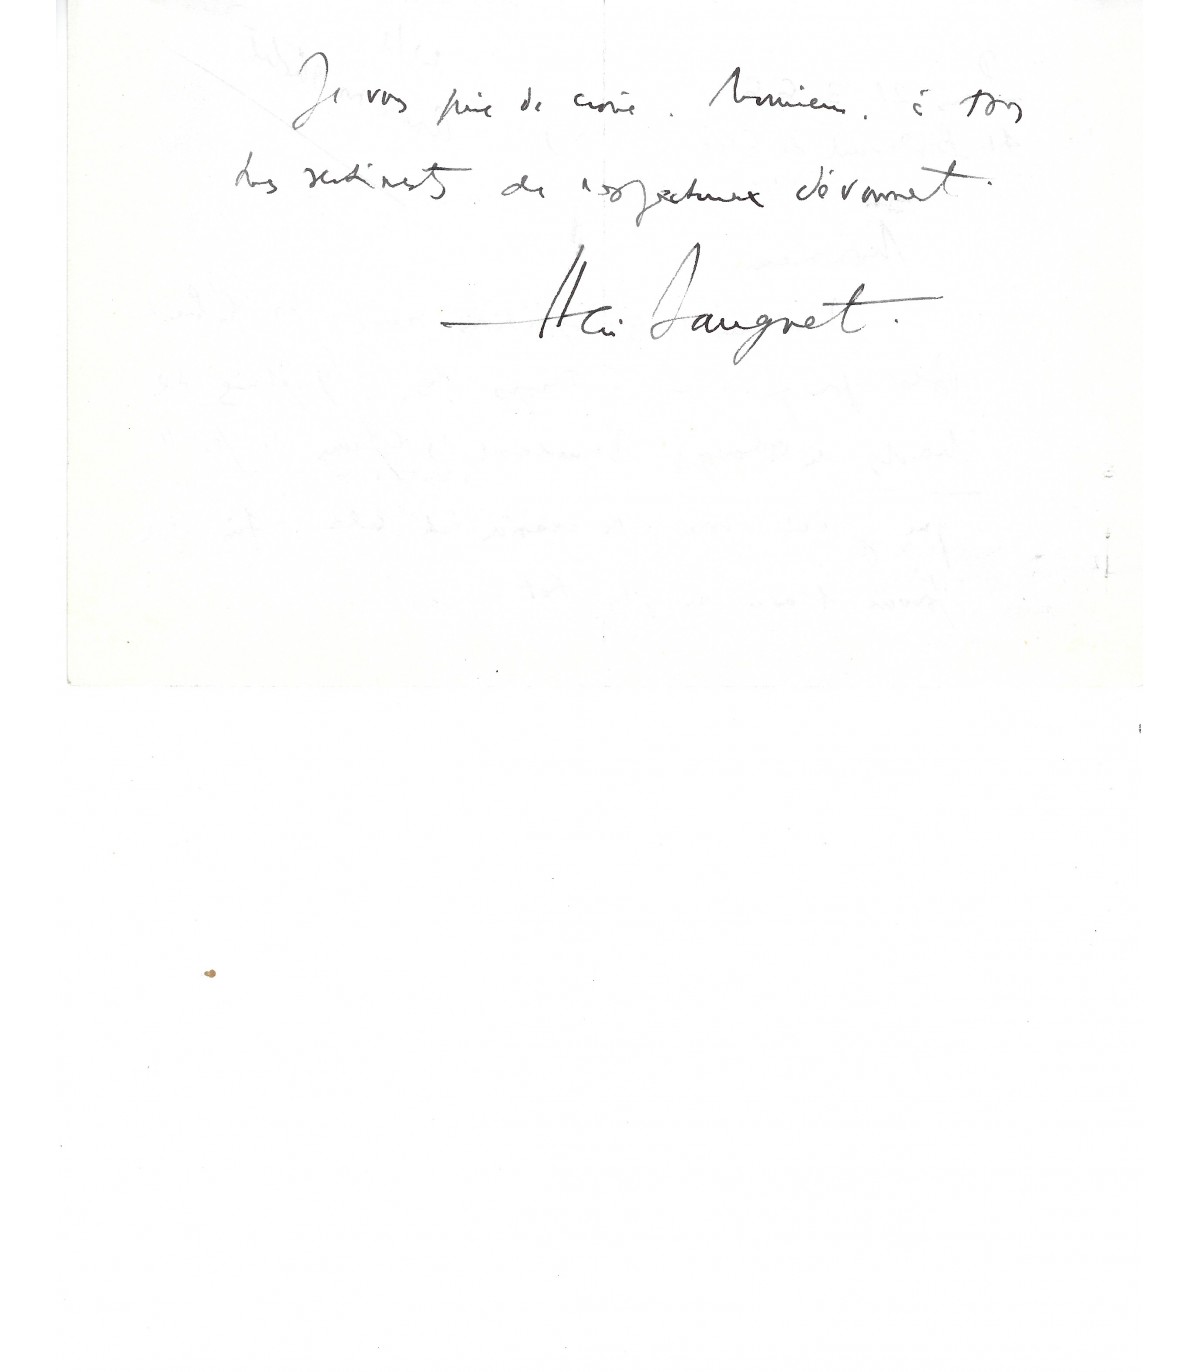 Je vous prie de croire, Monsieur, à tous
les sentiments de respectueux dévouement.
Henri Sauguet.